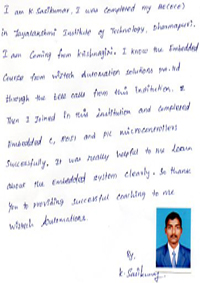 I am K. Sasikumar, I was completed my BE(ECE)
in Jayalakshmi Institute of Technology, Dharmapuri.
I am coming from krishnagiri. I know the Embedded
Course from Wistech Automation solutions pvt.ltd
through the tele calls from this institution.
Then I joined in this institution and completed
Embedded C, and PIC microcontrollers
Successfully. It was really helpful to me learn
about the Embedded system clearly. So thank
you to providing successful coaching to me
Wistech Automations.
By,
K. Sasikumar